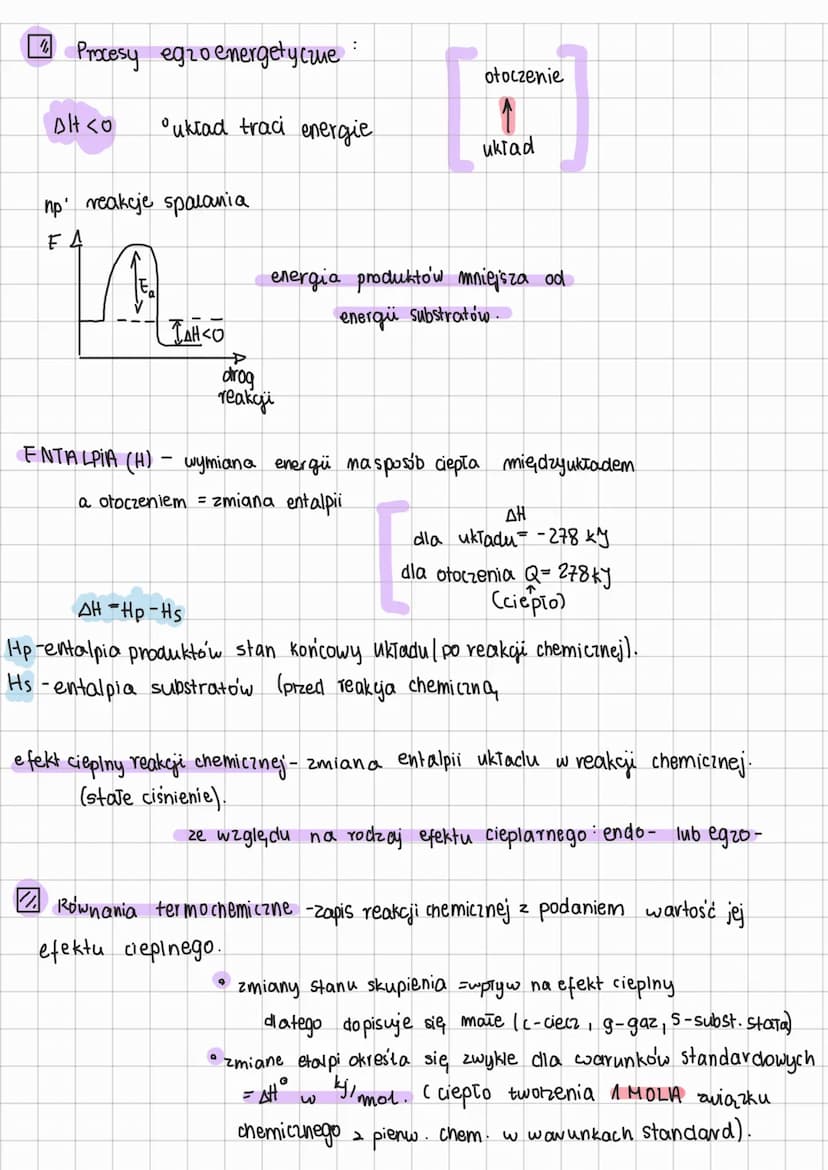 Procesy egzoenergetyczne :
otoczenie
ΔH<0 °układ traci energie
układ
np' reakcje spalania
E
Ea
energia produktów mniejsza od
energii substratów.
ΔH<0
drog
reakcji
ENTALPIA (H) - wymiana energii na sposób ciepła między układem
a otoczeniem = zmiana entalpii
ΔH
dla układu = -278 kJ
dla otoczenia Q = 278 kJ
(ciepło)
ΔH = Hp - Hs
Hp - entalpia produktów stan końcowy układu (po reakcji chemicznej).
Hs - entalpia substratów (przed reakcja chemiczną
efekt cieplny reakcji chemicznej - zmiana entalpii układu w reakcji chemicznej.
(stałe ciśnienie).
ze względu na rodzaj efektu cieplarnego : endo- lub egzo-
Równania termochemiczne - zapis reakcji chemicznej z podaniem wartość jej
efektu cieplnego.
• zmiany stanu skupienia = wpływ na efekt cieplny
dlatego dopisuje się małe (c-ciecz, g-gaz, s-subst. stała)
• zmiane etalpi określa się zwykle dla warunków standardowych
= ΔH° w kj/mol. (ciepło tworzenia 1 MOLA związku
chemicznego z pierw. chem. w warunkach standard).